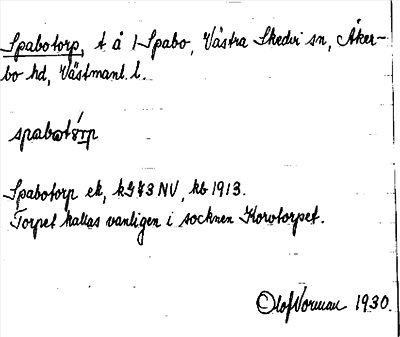 Spabotorp, t å 1 Spabo, Västra Skedvi sn, Åker-
bo hd, Västmanl. l.
spabωtŏ́rp
Spabotorp ek, k 973 NV, kb 1913.
Torpet kallas vanligen i socknen Korvtorpet.
Olof Norman 1930.